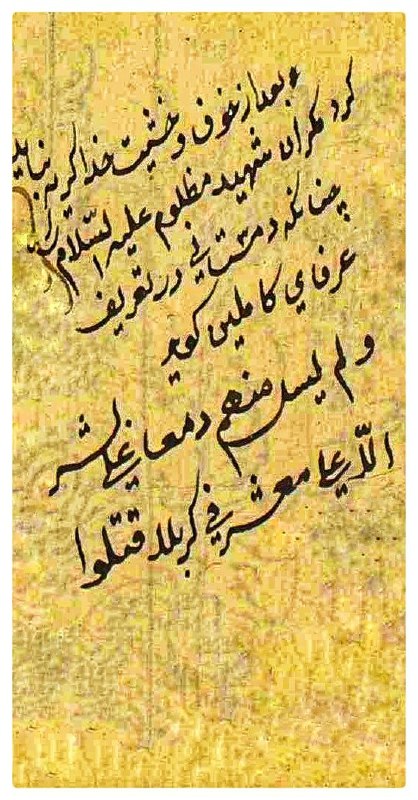 و بعد از خوف و خشیت خدا گریه نباید
کرد مگر ان شهید مظلوم علیه السّلام
چنانکه دمشقی در تعریف
عرفای کاملین کوید
و لم یسل منهم دمعا علی بشر
الّا علی معشر فی کربلا قتلوا